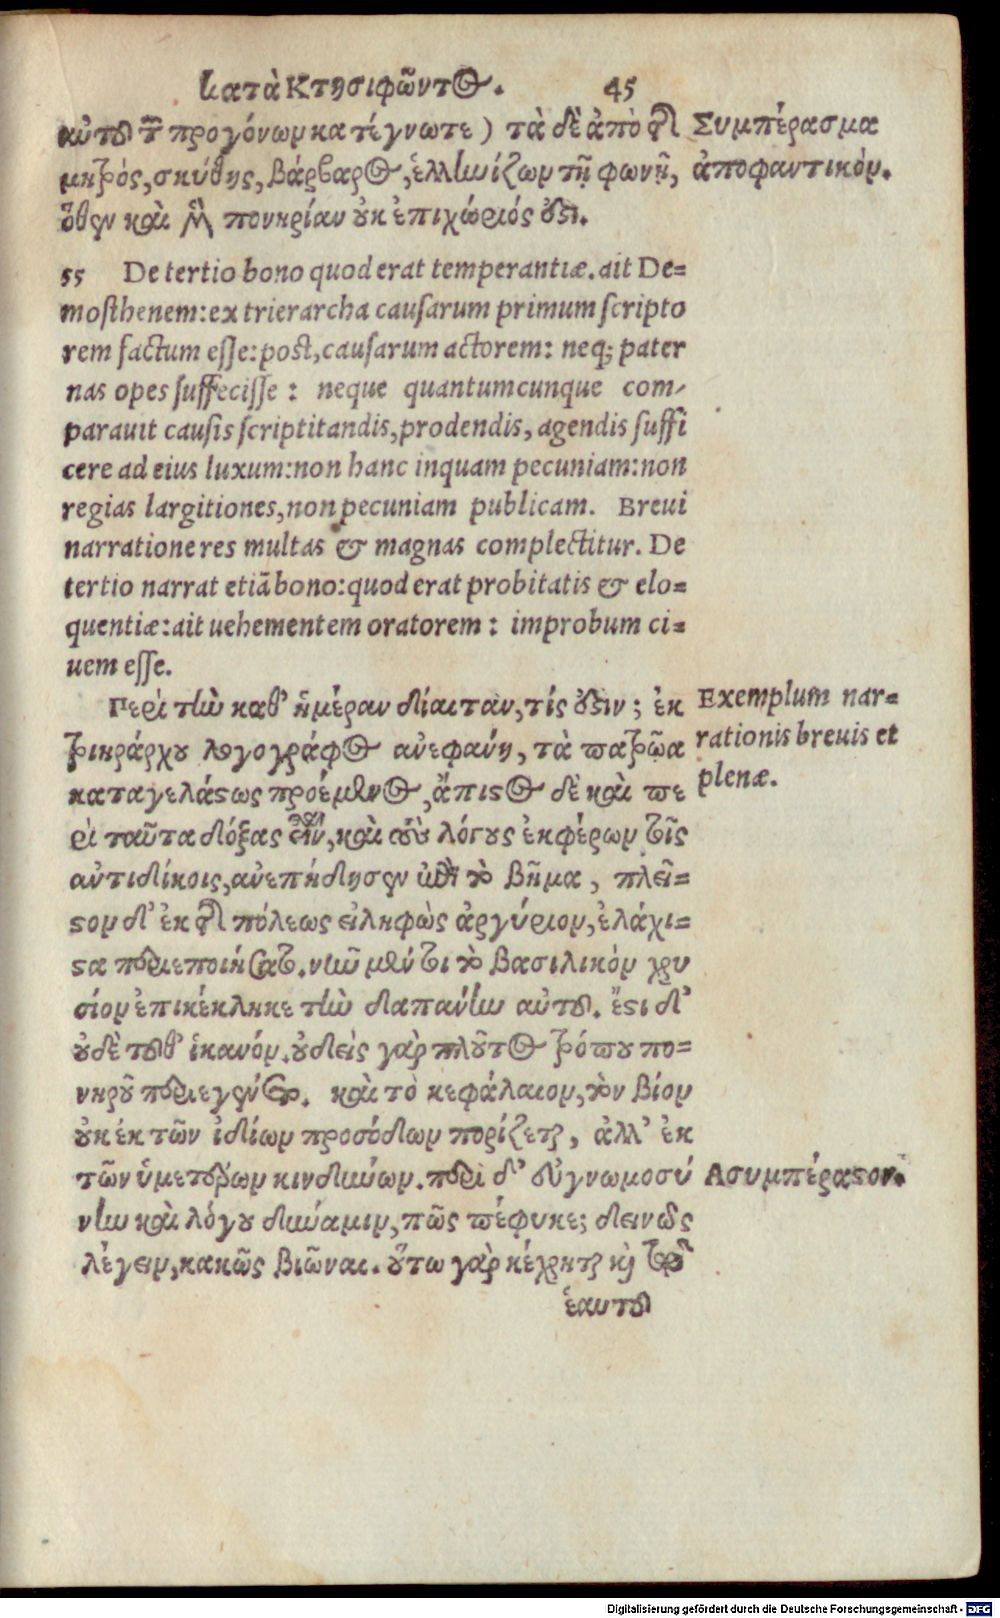 κατὰ Κτησιφῶντος. 45
αὐτοῦ τῶν προγόνων κατέγνωτε) τὰ δὲ ἀπὸ τῆς
μητρός, σκύθης, βάρβαρος, ἑλληνίζων τῇ φωνῇ,
ὅθεν καὶ τὴν πονηρίαν οὐκ ἐπιχώριός ἐστι.
Συμπέρασμα
ἀποφαντικόν.
55 De tertio bono quod erat temperantiæ. ait De=
mosthenem: ex trierarcha causarum primum scripto
rem factum esse: post, causarum actorem: neq; pater
nas opes suffecisse: neque quantumcunque com-
parauit causis scriptitandis, prodendis, agendis suffi
cere ad eius luxum: non hanc inquam pecuniam: non
regias largitiones, non pecuniam publicam. Breui
narratione res multas & magnas complectitur. De
tertio narrat etiã bono: quod erat probitatis & elo=
quentiæ: ait uehementem oratorem: improbum ci=
uem esse.
Περὶ τὴν καθ' ἡμέραν δίαιταν, τίς ἐστιν; ἐκ
τριηράρχου λογογράφος ἀνεφάνη, τὰ πατρῷα
καταγελάστως προέμενος, ἄπιστος δὲ καὶ πε
ρὶ ταῦτα δόξας εἶναι, καὶ τοὺς λόγους ἐκφέρων τοῖς
ἀντιδίκοις, ἀνεπήδησεν ἐπὶ τὸ βῆμα, πλεῖ=
στον δ' ἐκ τῆς πόλεως εἰληφὼς ἀργύριον, ἐλάχι=
στα περιεποιήσατο. νῦν μέντοι τὸ βασιλικὸν χρυ
σίον ἐπικέκληκε τὴν δαπάνην αὐτοῦ. ἔστι δ'
οὐδὲ τοῦθ' ἱκανόν. οὐδεὶς γὰρ πλοῦτος τρόπου πο=
νηροῦ περιεγένετο. καὶ τὸ κεφάλαιον, τὸν βίον
οὐκ ἐκ τῶν ἰδίων προσόδων πορίζεται, ἀλλ' ἐκ
τῶν ὑμετέρων κινδύνων. περὶ δ' εὐγνωμοσύ
νην καὶ λόγου δύναμιν, πῶς πέφυκε; δεινῶς
λέγειν, κακῶς βιῶναι. οὕτω γὰρ κέχρηται καὶ τῷ
ἑαυτοῦ
Exemplum nar=
rationis breuis et
plenæ.
Ασυμπέραστον.
Digitalisierung gefördert durch die Deutsche Forschungsgemeinschaft - DFG